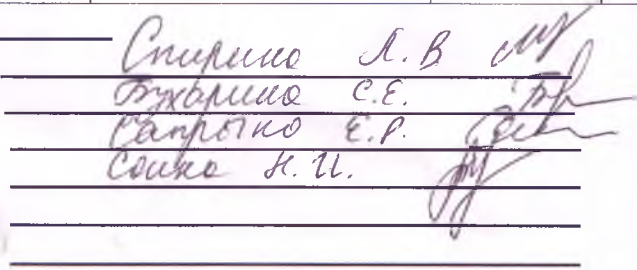 Спирина Л. В
Бухарина С.Е.
Сапрыко Е.Р.
Сошко Н.И.